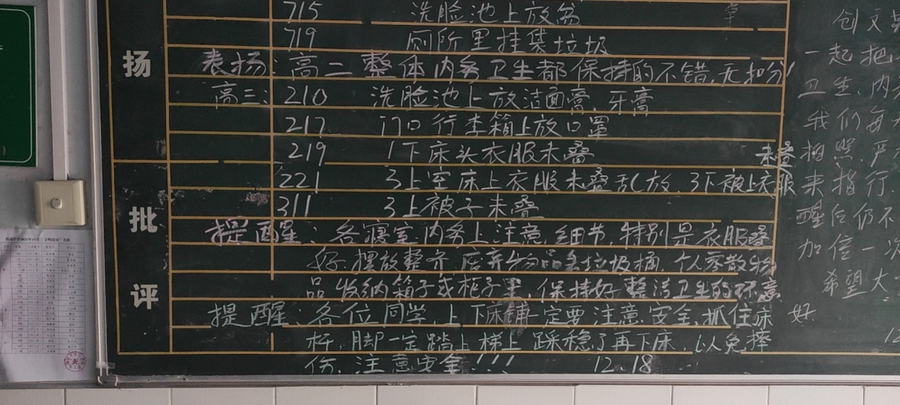 715 洗脸池上放盆
719 厕所里挂袋垃圾
扬
表扬:高二整体内务卫生都保持的不错,无扣分!
高三:210 洗脸池上放洁面膏、牙膏
217 门口行李箱上放口罩
219 1下床头衣服未叠
221 3上空床上衣服未叠乱放,3下被上衣服未叠
311 3上被子未叠
批
提醒:各寝室内务上注意细节,特别是衣服叠
好,摆放整齐,废弃物品丢垃圾桶,个人零散物
品收纳箱子或柜子里,保持好整洁卫生的环境
评
提醒:各位同学上下床铺一定要注意安全,抓住床
杆,脚一定踏上梯上踩稳了再下床,以免摔
伤,注意安全!!! 12.18
创文
一起把
卫生,内
我们每
拍照,严
来指行,
醒后仍不
加倍一次
希望大
好